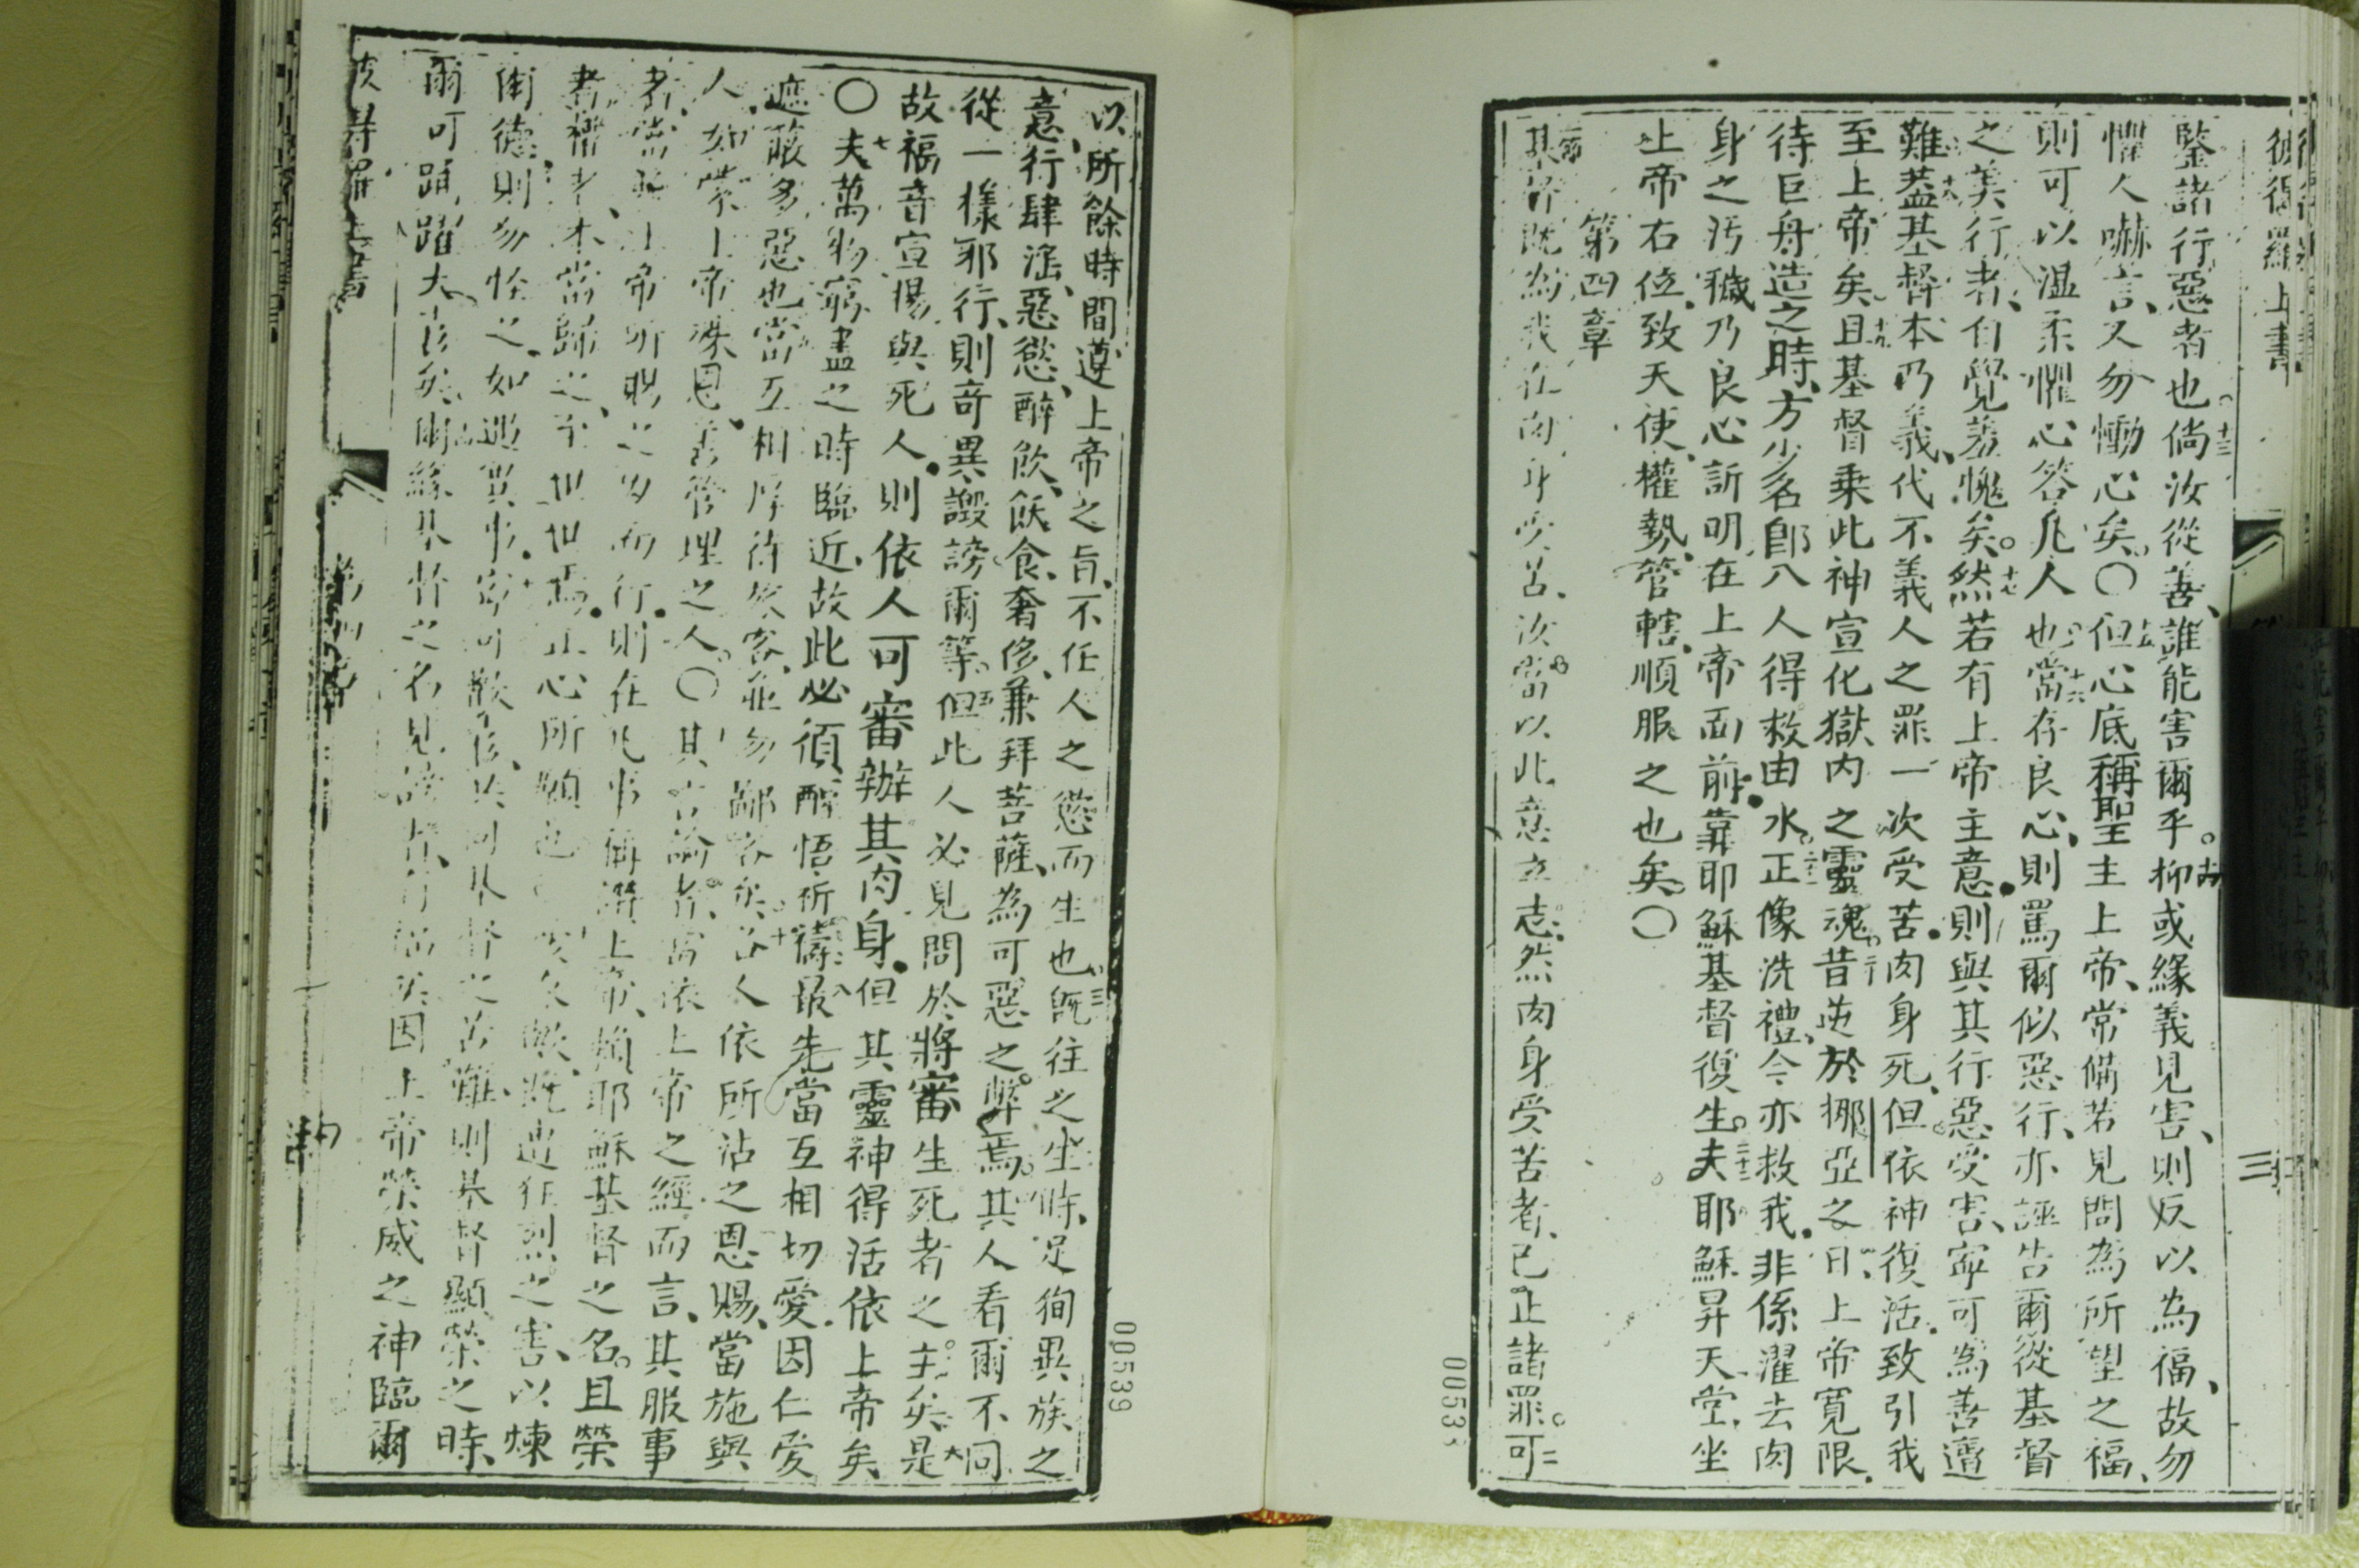 彼得羅上書
三
鑒諸行惡者也十三倘汝從善、誰能害爾乎。十四抑或緣義見害、則反以為福、故勿
懼人嚇言、又勿慟心矣。〇十五但心底稱聖主上帝、常備若見問為所望之福、
則可以溫柔懼心答凡人也。十六當存良心、則罵爾似惡行、亦誣告爾從基督
之美行者、自覺羞愧矣。十七然若有上帝主意、則與其行惡受害、寧可為善遭
難、十八蓋基督本乃義、代不義人之罪一次受苦、肉身死、但依神復活、致引我
至上帝矣、十九且基督乘此神宣化獄內之靈魂。二十昔逆於挪亞之日、上帝寬限、
待巨舟造之時、方少名即八人得救由水。二十一正像洗禮、今亦救我、非係濯去肉
身之污穢、乃良心訴明在上帝面前、靠耶穌基督復生。二十二夫耶穌昇天堂、坐
上帝右位、致天使、權勢、管轄、順服之也矣。〇
第四章
一節其督既為我在肉身受苦、汝當以此意立志、然肉身受苦者、已止諸罪。二可
00538
以所餘時間遵上帝之旨、不任人之慾而生也、三既往之生時、足徇異族之
意、行肆淫、惡慾、醉飲、飫食、奢侈、兼拜菩薩、為可惡之弊焉。四其人看爾不同
從一樣邪行、則奇異譭謗爾等。五但此人必見問於將審生死者之主矣。六是
故福音宣揚與死人、則依人可審辦其肉身、但其靈神得活依上帝矣
〇七夫萬物窮盡之時臨近、故此必須醒悟祈禱、八最先當互相切愛、因仁愛
遮蔽多惡也、九當互相厚待旅客、並勿鄙吝矣、十各人依所沾之恩賜、當施與
人、如掌上帝殊恩、善管理之人。〇十一其言論者、當依上帝之經而言、其服事
者、當照上帝所賜之力而行、則在凡事偁讚上帝、緣耶穌基督之名。且榮
者權者、本當歸之、至世世焉、正心所願也。十二友乎、歟、既遭狂烈之害、以煉
爾德、則勿怪之、如遇異事、十三寧可歡喜、共同基督之苦難、則基督顯榮之時、
爾可踴躍大喜矣、十四爾緣基督之名見謗者、有福矣、因上帝榮威之神臨爾
彼得羅上書
第四章
00539